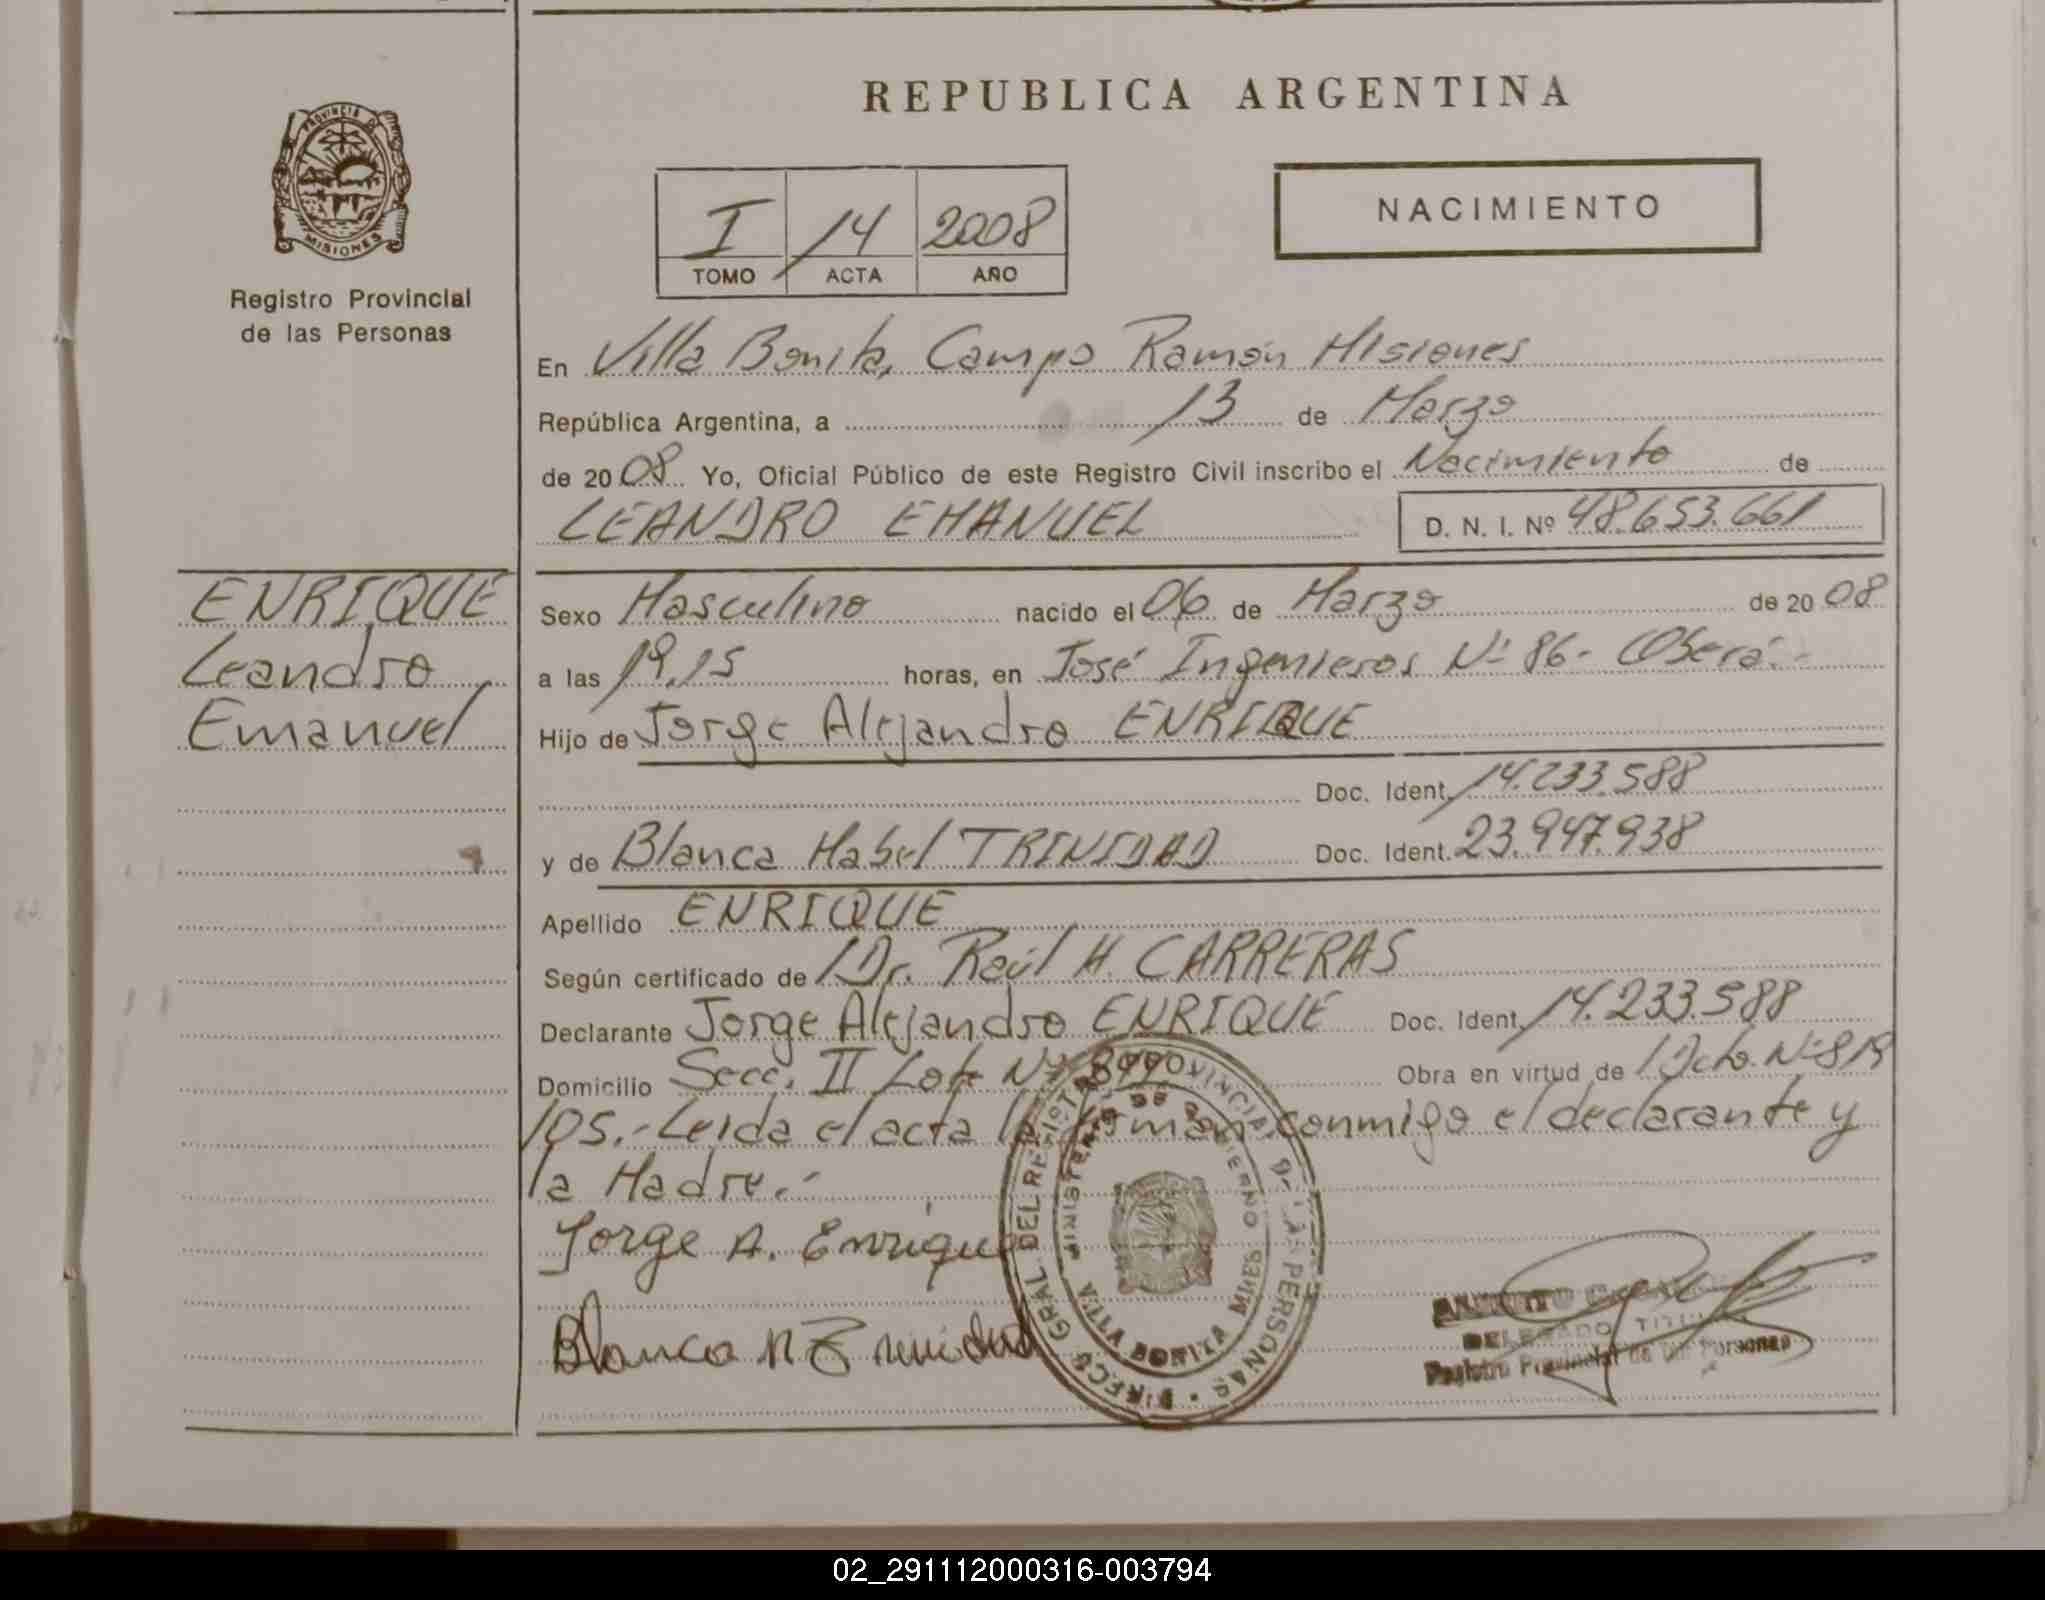 PROVINCIA DE
MISIONES
Registro Provincial
de las Personas
ENRIQUE
Leandro
Emanuel
REPUBLICA ARGENTINA
I 14 2008
TOMO ACTA AÑO
NACIMIENTO
En Villa Bonita, Campo Ramón Misiones
República Argentina, a 13 de Marzo
de 2008 Yo, Oficial Público de este Registro Civil inscribo el Nacimiento de
LEANDRO EMANUEL D. N. I. Nº 48.653.661
Sexo Masculino nacido el 06 de Marzo de 2008
a las 19,15 horas, en José Ingenieros Nº 86- Oberá.-
Hijo de Jorge Alejandro ENRIQUE
Doc. Ident. 14.233.588
y de Blanca Mabel TRINIDAD Doc. Ident. 23.947.938
Apellido ENRIQUE
Según certificado de Dr. Raúl H. CARRERAS
Declarante Jorge Alejandro ENRIQUE Doc. Ident. 14.233.588
Domicilio Secc. II Lote Nº Obra en virtud de Dcto. Nº 819
105.- Leída el acta la firman conmigo el declarante y
la Madre.-
Jorge A. Enrique
Blanca M Trinidad
DIRECC. GRAL. DEL REGISTRO PROVINCIAL DE LAS PERSONAS
MINISTERIO DE GOBIERNO
VILLA BONITA MNES
DELEGADO TITULAR
Registro Provincial de las Personas
02_291112000316-003794